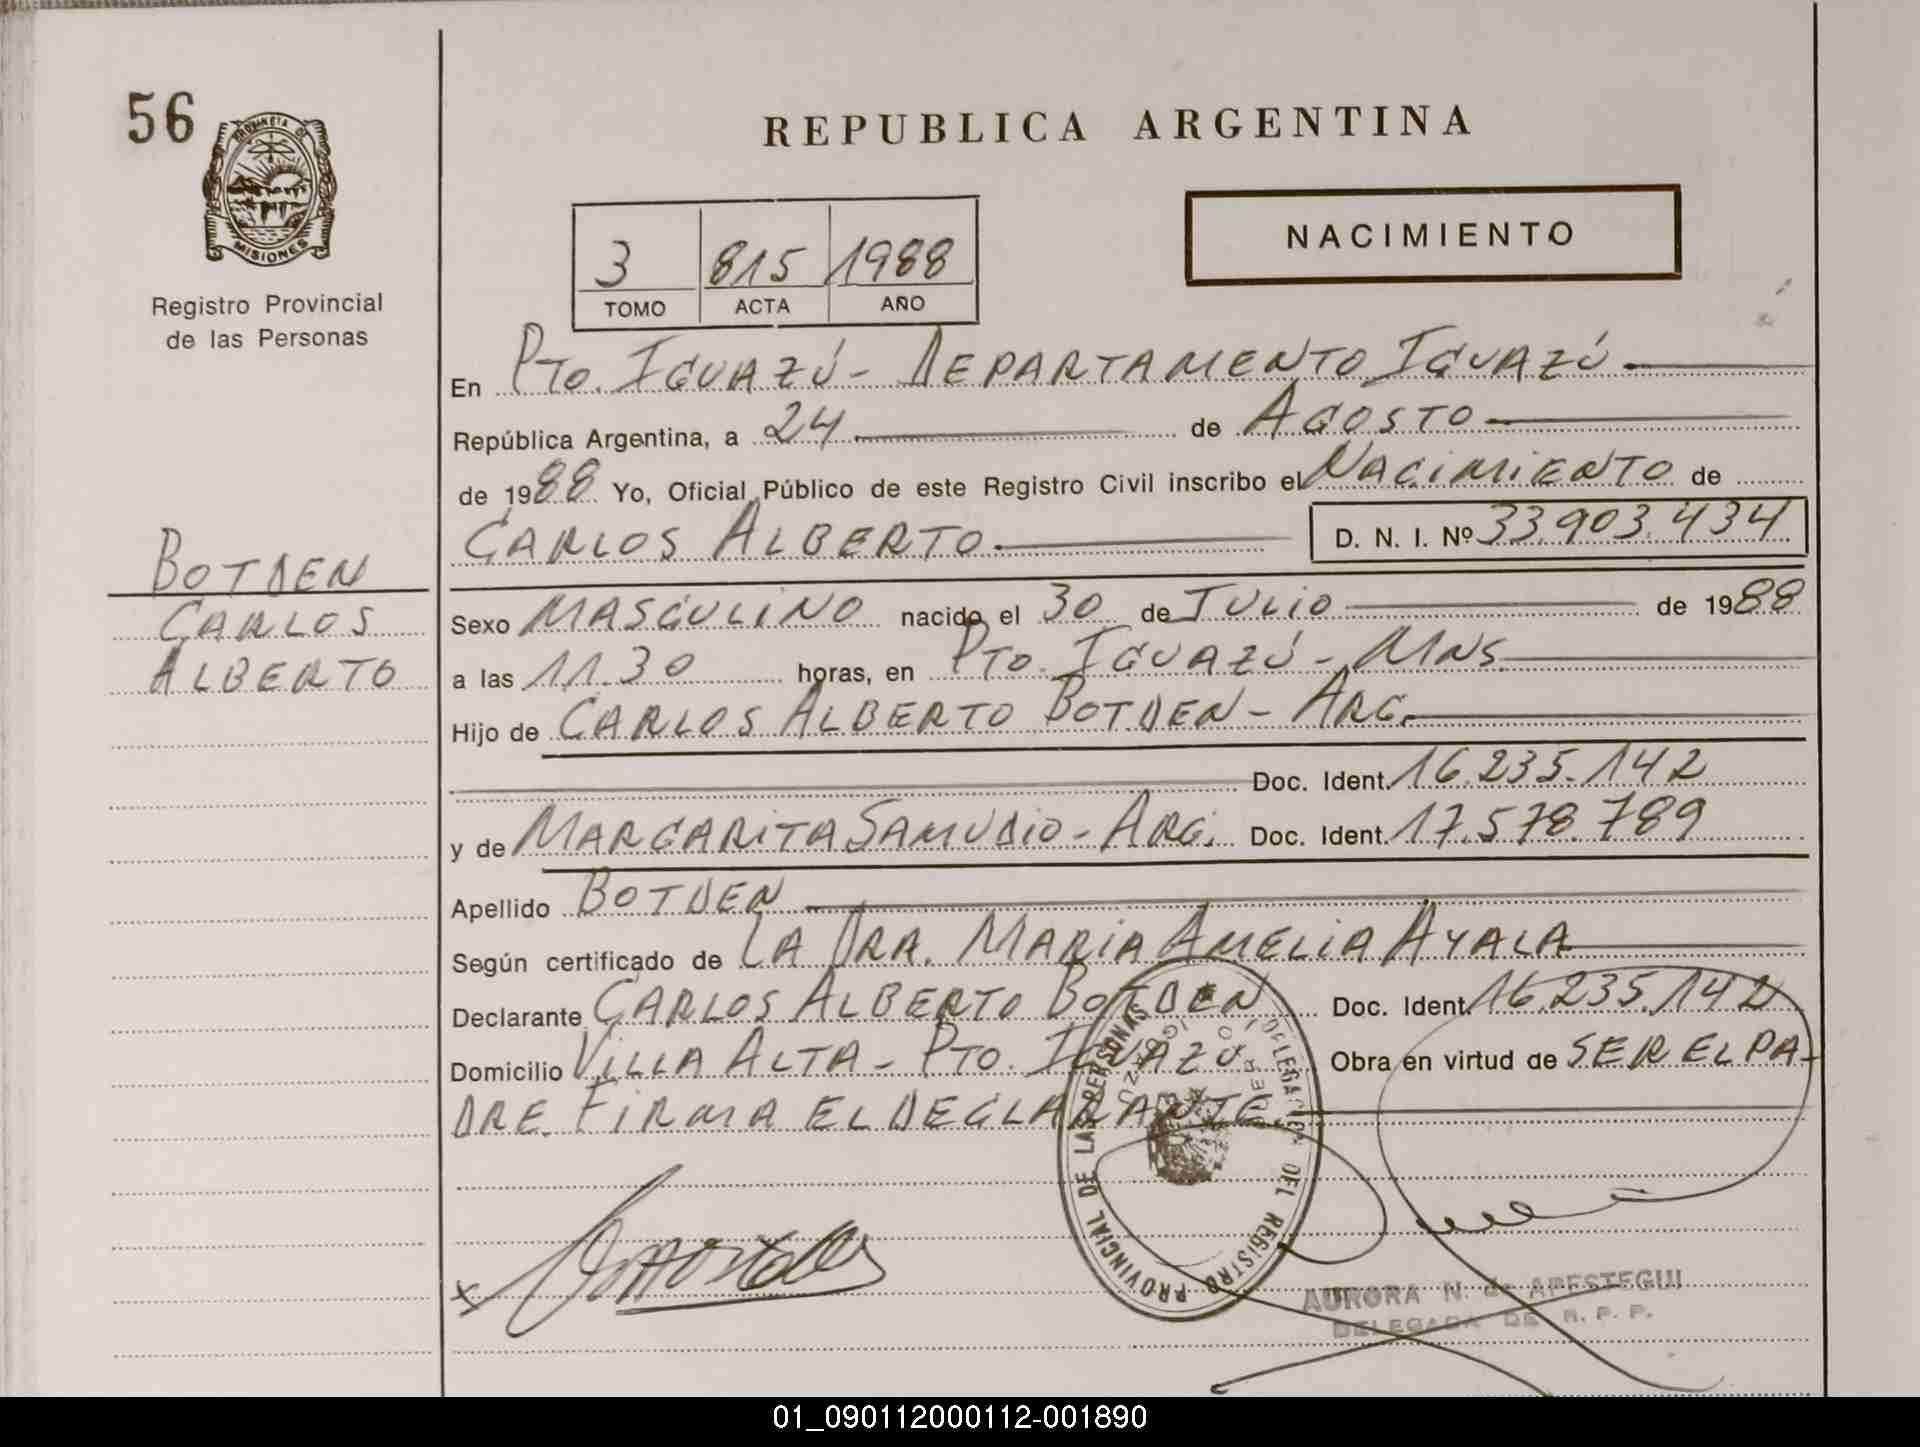 56
PROVINCIA DE
MISIONES
Registro Provincial
de las Personas
REPUBLICA ARGENTINA
NACIMIENTO
3 815 1988
TOMO ACTA AÑO
En PTO. IGUAZÚ - DEPARTAMENTO IGUAZÚ
República Argentina, a 24 de AGOSTO
de 1988 Yo, Oficial Público de este Registro Civil inscribo el NACIMIENTO de
CARLOS ALBERTO D. N. I. Nº 33.903.434
BOTDEN
CARLOS
ALBERTO
Sexo MASCULINO nacido el 30 de JULIO de 1988
a las 11.30 horas, en PTO. IGUAZÚ - MNS.
Hijo de CARLOS ALBERTO BOTDEN - ARG.
Doc. Ident. 16.235.142
y de MARGARITA SAMUDIO - ARG. Doc. Ident. 17.578.789
Apellido BOTDEN
Según certificado de LA DRA. MARIA AMELIA AYALA
Declarante CARLOS ALBERTO BOTDEN Doc. Ident. 16.235.142
Domicilio VILLA ALTA - PTO. IGUAZÚ Obra en virtud de SER EL PA-
DRE. FIRMA EL DECLARANTE
DEL REGISTRO PROVINCIAL DE LAS PERSONAS
AURORA N. de APESTEGUI
DELEGADA DE R. P. P.
01_090112000112-001890